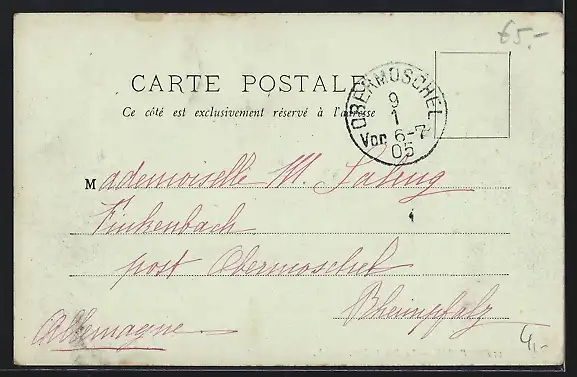 €5.-
CARTE POSTALE
Ce côté est exclusivement réservé à l'adresse
OBERMOSCHEL
9
1
Vor 6-7
05
Mademoiselle M.
Finkenbach
post Obermoschel
Rheinpfalz
Allemagne
4,-